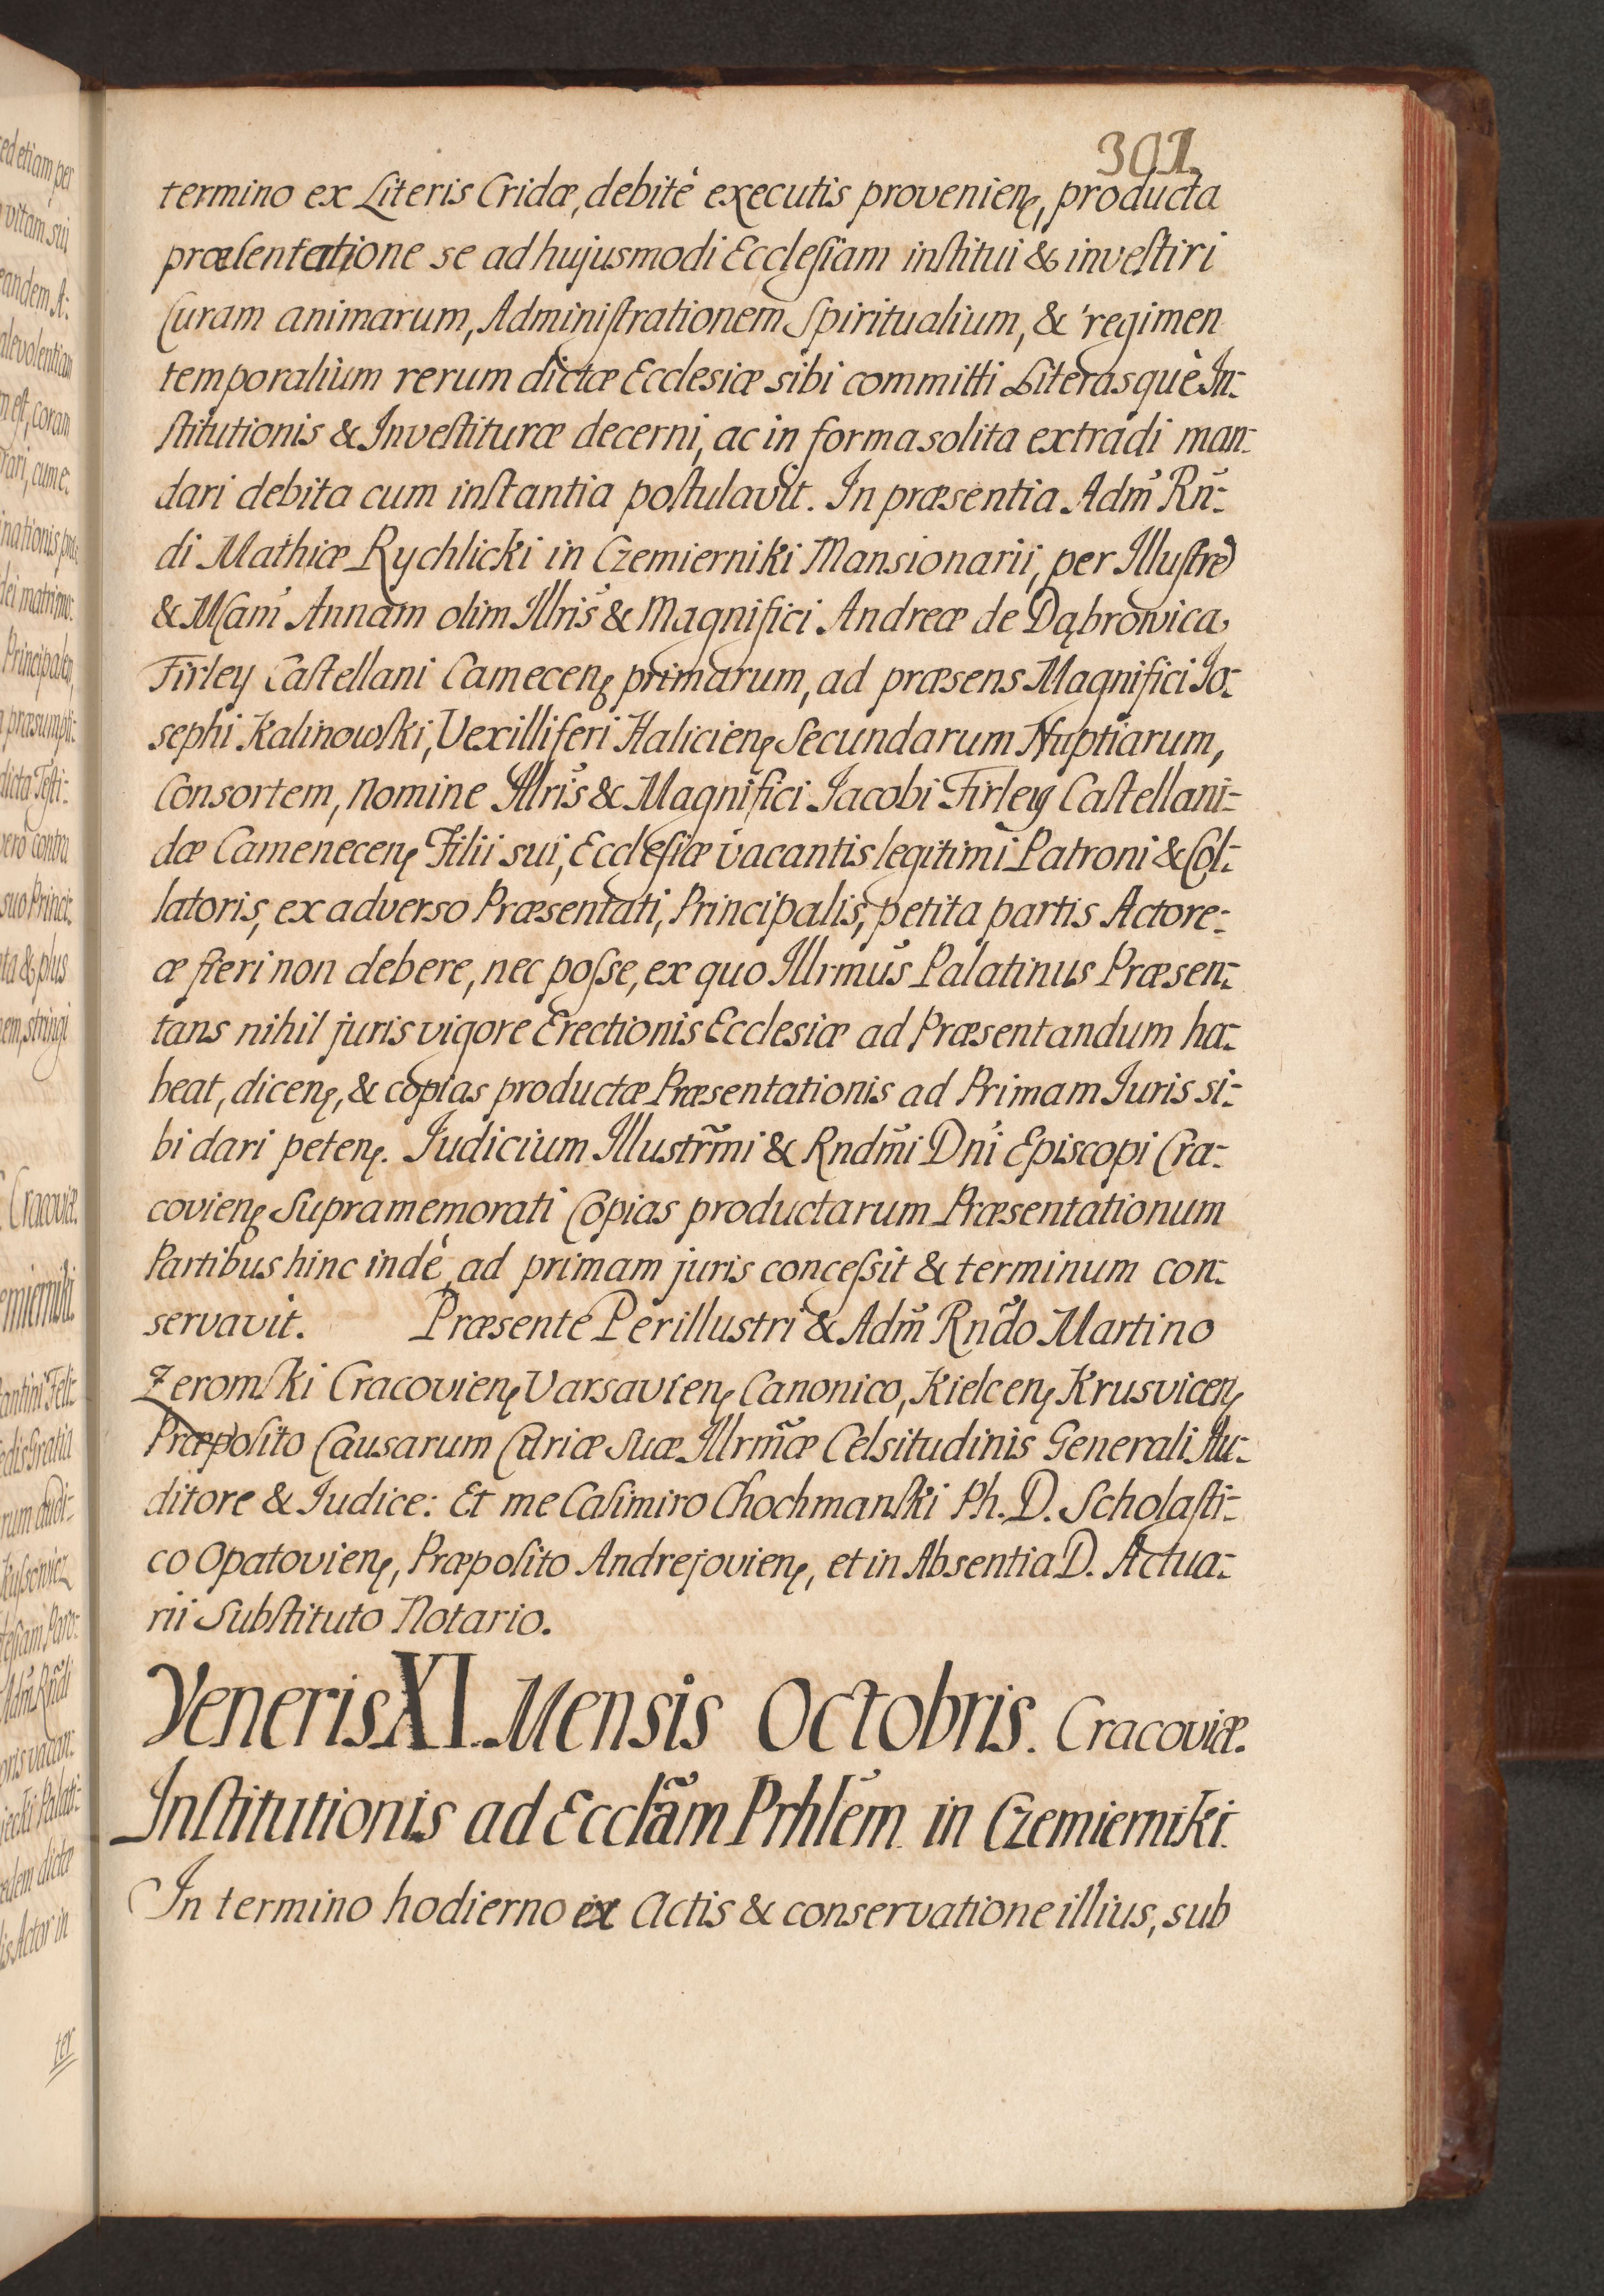 301
termino ex Literis Cridæ, debitè executis provenienȩ, producta
præſentatione se ad hujusmodi Eccleſiam inſtitui & inveſtiri
Curam animarum, Adminiſtrationem Spiritualium, & regimen
temporalium rerum dictæ Ecclesiæ sibi committi Literasquè In:
ſtitutionis & Inveſtituræ decerni, ac in forma solita extradi man:
dari debita cum inſtantia poſtulavit. In præsentia Adm̃ Rñ:
di Mathiæ Rychlicki in Czemierniki Mansionarii, per Illuſtrẽ
& Mgam̃ Annam olim Illris̃ & Magnifici Andreæ de Dąbrowica
Firley Caſtellani Camecenȩ primarum, ad præsens Magnifici Jo:
sephi Kalinowſki, Vexilliferi Halicienȩ Secundarum Nuptiarum,
Consortem, nomine Illris̃ & Magnifici Jacobi Firley Caſtellani:
dæ Camenecenȩ Filii sui, Eccleſiæ vacantis legitimi Patroni & Col:
latoris, ex adverso Præsentati, Principalis, petita partis Actore:
æ fieri non debere, nec poſse, ex quo Illrmus̃ Palatinus Præsen:
tans nihil juris vigore Erectionis Ecclesiæ ad Præsentandum ha:
beat, dicenȩ, & copias productæ Præsentationis ad Primam Juris si:
bi dari petenȩ. Judicium Illustrm̃i & Rndm̃i Dñi Episcopi Cra:
covienȩ Supramemorati Copias productarum Præsentationum
Partibus hinc indè, ad primam juris conceſsit & terminum con:
servavit. Præsente Perillustri & Adm̃ Rndõ Martino
Zeromſki Cracovienȩ Varsavienȩ Canonico, Kielcenȩ Krusvicenȩ
Præpoſito Causarum Curiæ suæ Illrmæ̃ Celsitudinis Generali Au:
ditore & Judice: Et me Caſimiro Chochmanſki Ph. D. Scholaſti:
co Opatovienȩ, Præpoſito Andrejovienȩ, et in Absentia D. Actua:
rii Subſtituto Notario.
Veneris XI. Mensis Octobris. Cracoviæ.
Inſtitutionis ad Ecclãm Prhlẽm in Czemierniki.
In termino hodierno ex Actis & conservatione illius, sub